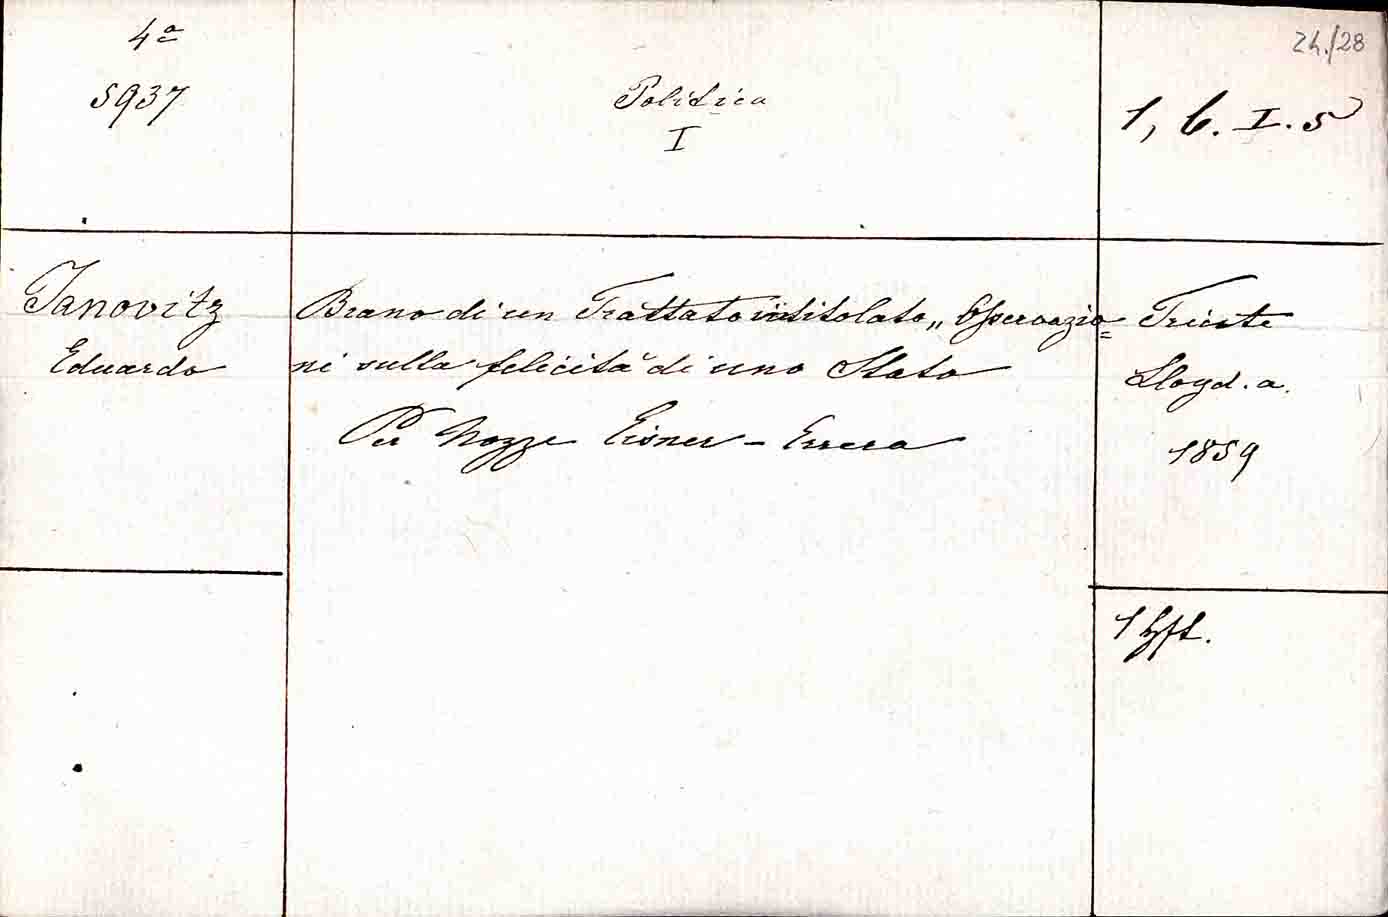 4a
5937
Politica
I
24./28
1, 6. I. 5
Janovitz
Eduardo
Brano di un Trattato intitolato „ Osservazio=
ni sulla felicità di uno Stato
Per Nozze Eisner - Errera
Trieste
Lloyd. a.
1859
1 hft.